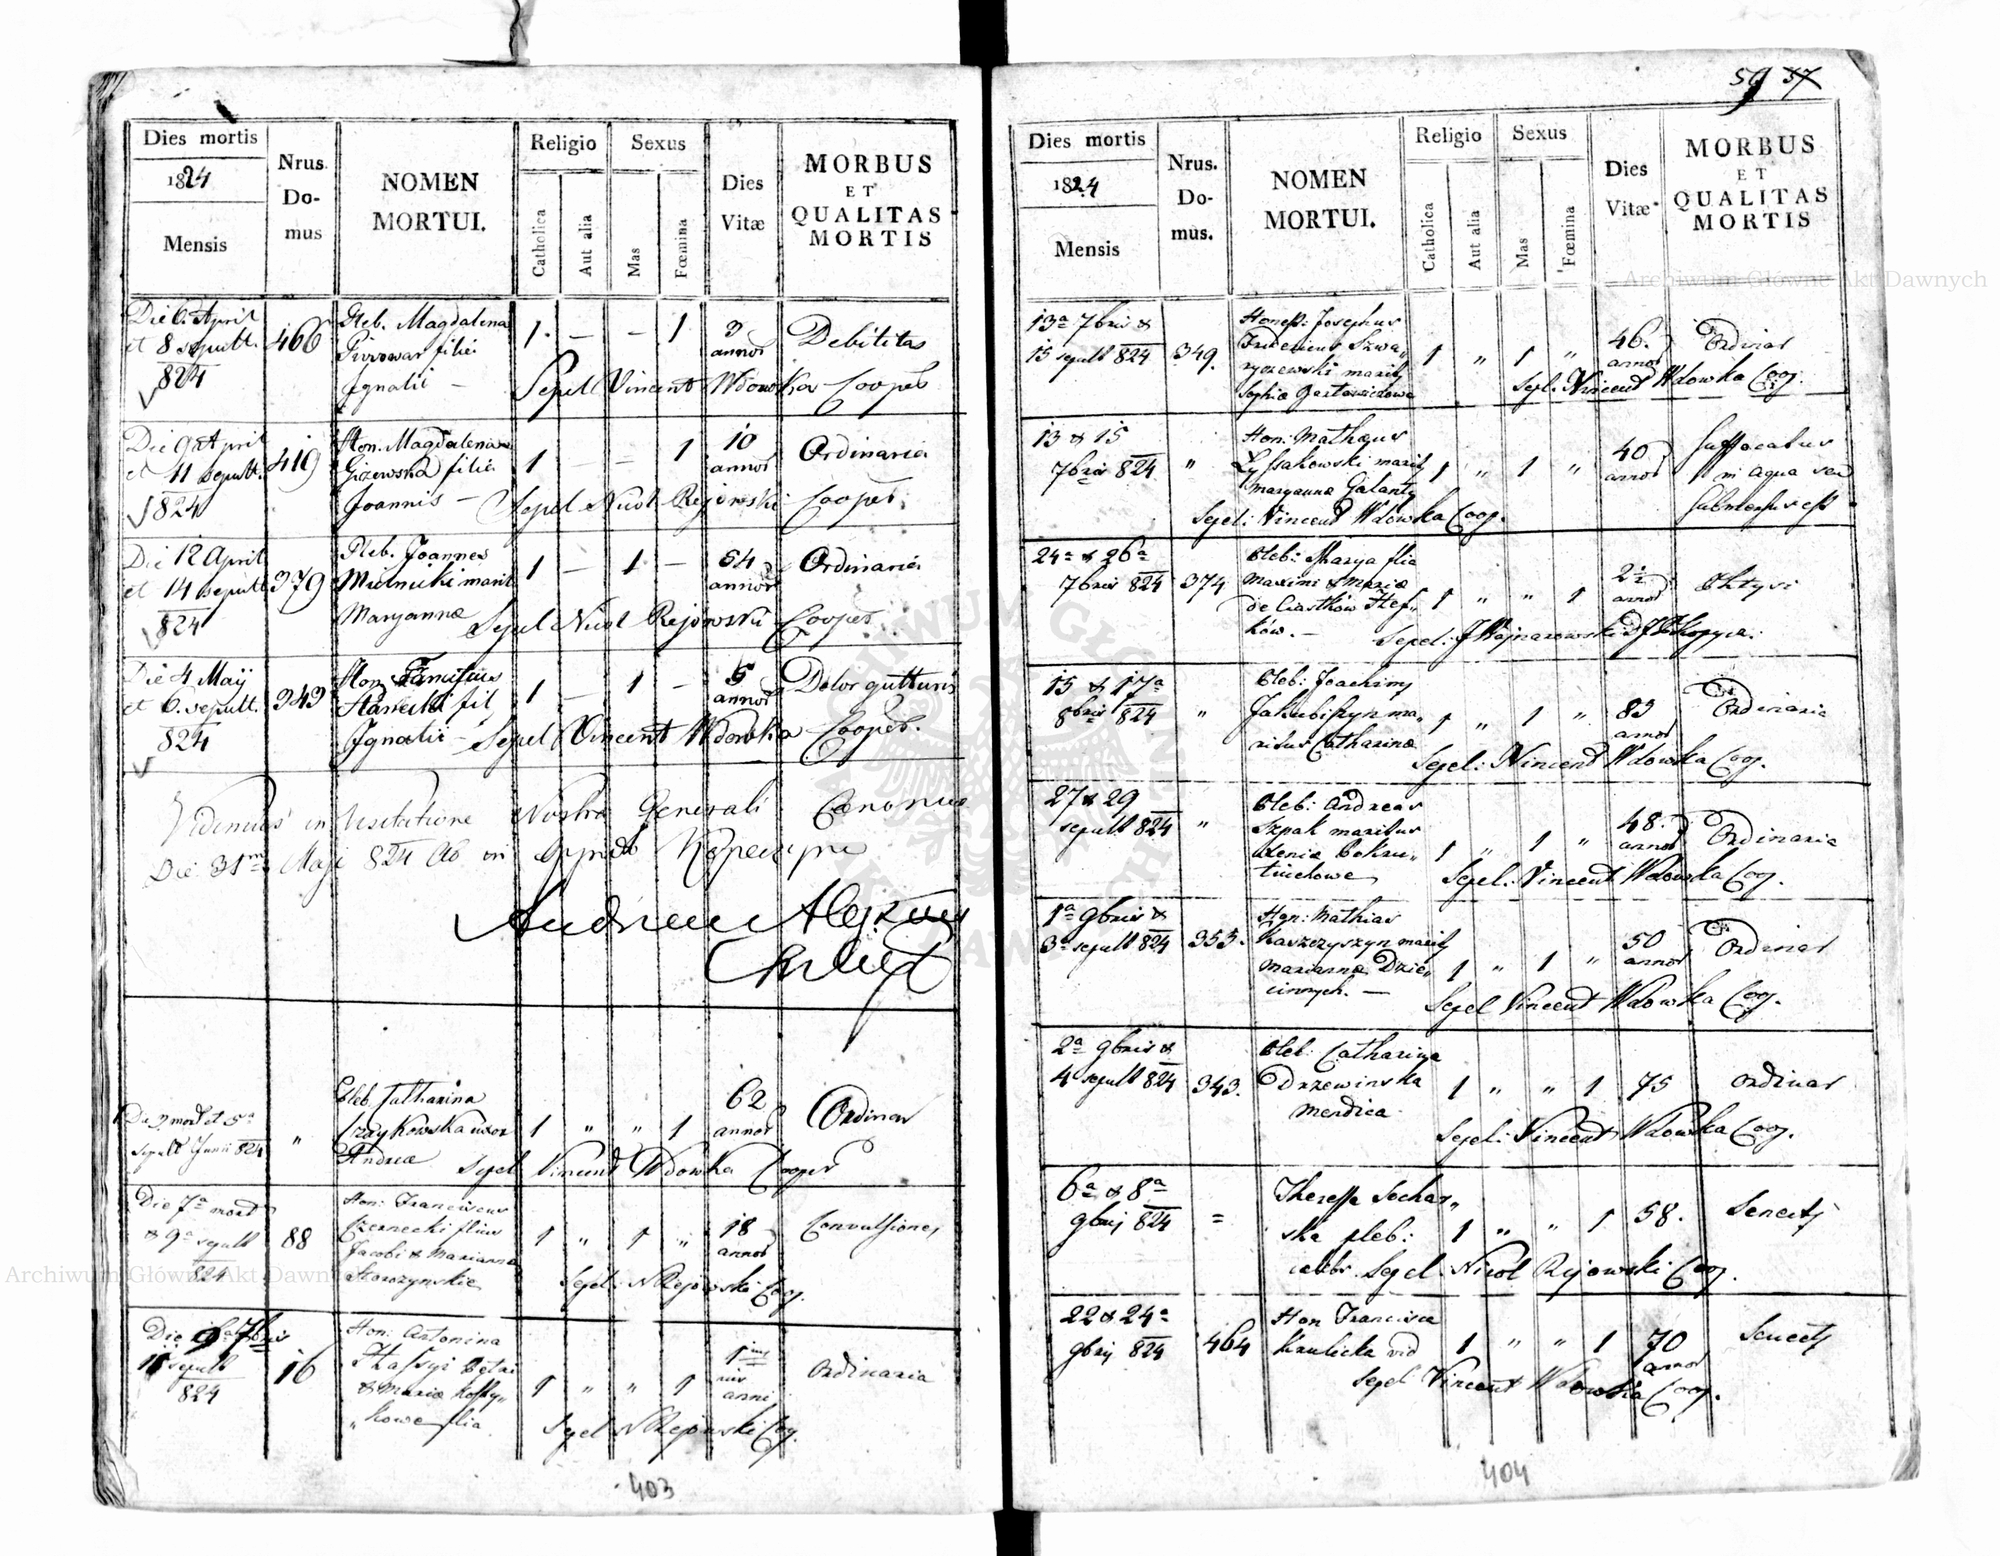 Dies mortis
1824
Mensis
Nrus.
Do-
mus
NOMEN
MORTUI.
Religio
Catholica
Aut alia
Sexus
Mas
Fœmina
Dies
Vitæ
MORBUS
ET
QUALITAS
MORTIS
Die 6. April
et 8 sepult.
824
466
Pleb. Magdalena
Piwowar filia
Ignatii —
1. — — 1
3
annor
Debilitas
Sepel Vincent Wdowka Cooper
Die 9 April
et 11 sepult.
824
419
Hon. Magdalena
Gizewska filia
Joannis —
1 — — 1
10
annor
Ordinaria
Sepel Nicol Rejowski Cooper.
Die 12 April
et 14 sepult
824
379
Pleb. Joannes
Mielnicki marit
Maryannæ
1 — 1 —
54
annor
Ordinaria
Sepel Nicol Rejowski Cooper
Die 4 Maij
et 6. sepult.
824
343
Hon
fil
Ignatii —
1 — 1 —
5
annor
Dolor gutturis
Sepel Vincent Wdowka Cooper.
Vidimus in Visitatione Nostra Generali Canonica
Die 31ma Maji 824 Ao in
Andreas
Die 3 mort et 5a
sepult Junii 824
"
Pleb. Catharina
Czaykowska uxor
Andreæ
1 " " 1
62
annor
Ordinar
Sepel Vincent Wdowka Cooper
Die 7a mort
& 9a sepult
824
88
Hon: Franciscus
Czernecki filius
Jacobi & Marianna
Skorczynskie
1 " 1 "
18
annor
Convulsiones
Sepel: N Rejowski Coop.
Die 7bris
11 sepult
824
16
Hon: Antonina
Petri
& Maria
filia
1 " " 1
1
anni
Ordinaria
Sepel N Rejowski Coop.
403
59 37
Dies mortis
1824
Mensis
Nrus.
Do-
mus.
NOMEN
MORTUI.
Religio
Catholica
Aut alia
Sexus
Mas
Fœmina
Dies
Vitæ
MORBUS
ET
QUALITAS
MORTIS
13a 7bris &
15 sepult 824
349.
Honest. Josephus
Fridericus Szwa„
ryczewski marit
Sophiæ Gostowiczowa
1 " 1 "
46.
annor
Ordinar
Sepl. Vincent Wdowka Coop.
13 & 15
7bris 824
"
Hon: Mathæus
Lyssakowski marit
Maryannæ Galanty
1 " 1 "
40
annor
Suffocatus
in aqua seu
submersus est
Sepel: Vincent Wdowka Coop.
24a & 26a
7bris 824
374
Pleb: Marya flia
Maximi & Maria
de Ciastków Stef„
ków. —
1 " " 1
2½
annor
Sepel: J Wojnarowski
15 & 17a
8bris 824
"
Pleb: Joachim
Jakubiszyn ma„
ritus Catharinæ
1 " 1 "
83
annor
Ordinaria
Sepel: Vincent Wdowka Coop.
27 & 29
sepult 824
"
Pleb: Andreas
Szpak maritus
1 " 1 "
48.
annor
Ordinaria
Sepel: Vincent Wdowka Coop.
1a 9bris &
3a sepult 824
353.
Hon: Mathias
Kaszczyszyn marit
Mariannæ Dzie„
cinnych. —
1 " 1 "
50
annor
Ordinar
Sepel Vincent Wdowka Coop.
2a 9bris &
4 sepult 824
343.
Pleb: Catharina
Drzewinska
mendica
1 " " 1
75
Ordinar
Sepel: Vincent Wdowka Coop.
6a & 8a
9brij 824
=
Theressa Sochar„
ska pleb:
1 " " 1
58.
Senectus
Sepel. Nicol Rejowski Coop.
22 & 24a
9brij 824
464
Hon Francisca
Krulicka vid
1 " " 1
70
annor
Senectus
Sepel Vincent Wdowka Coop.
404
Archiwum Główne Akt Dawnych
Archiwum Główne Akt Dawnych
ARCHIWUM GŁÓWNE AKT DAWNYCH